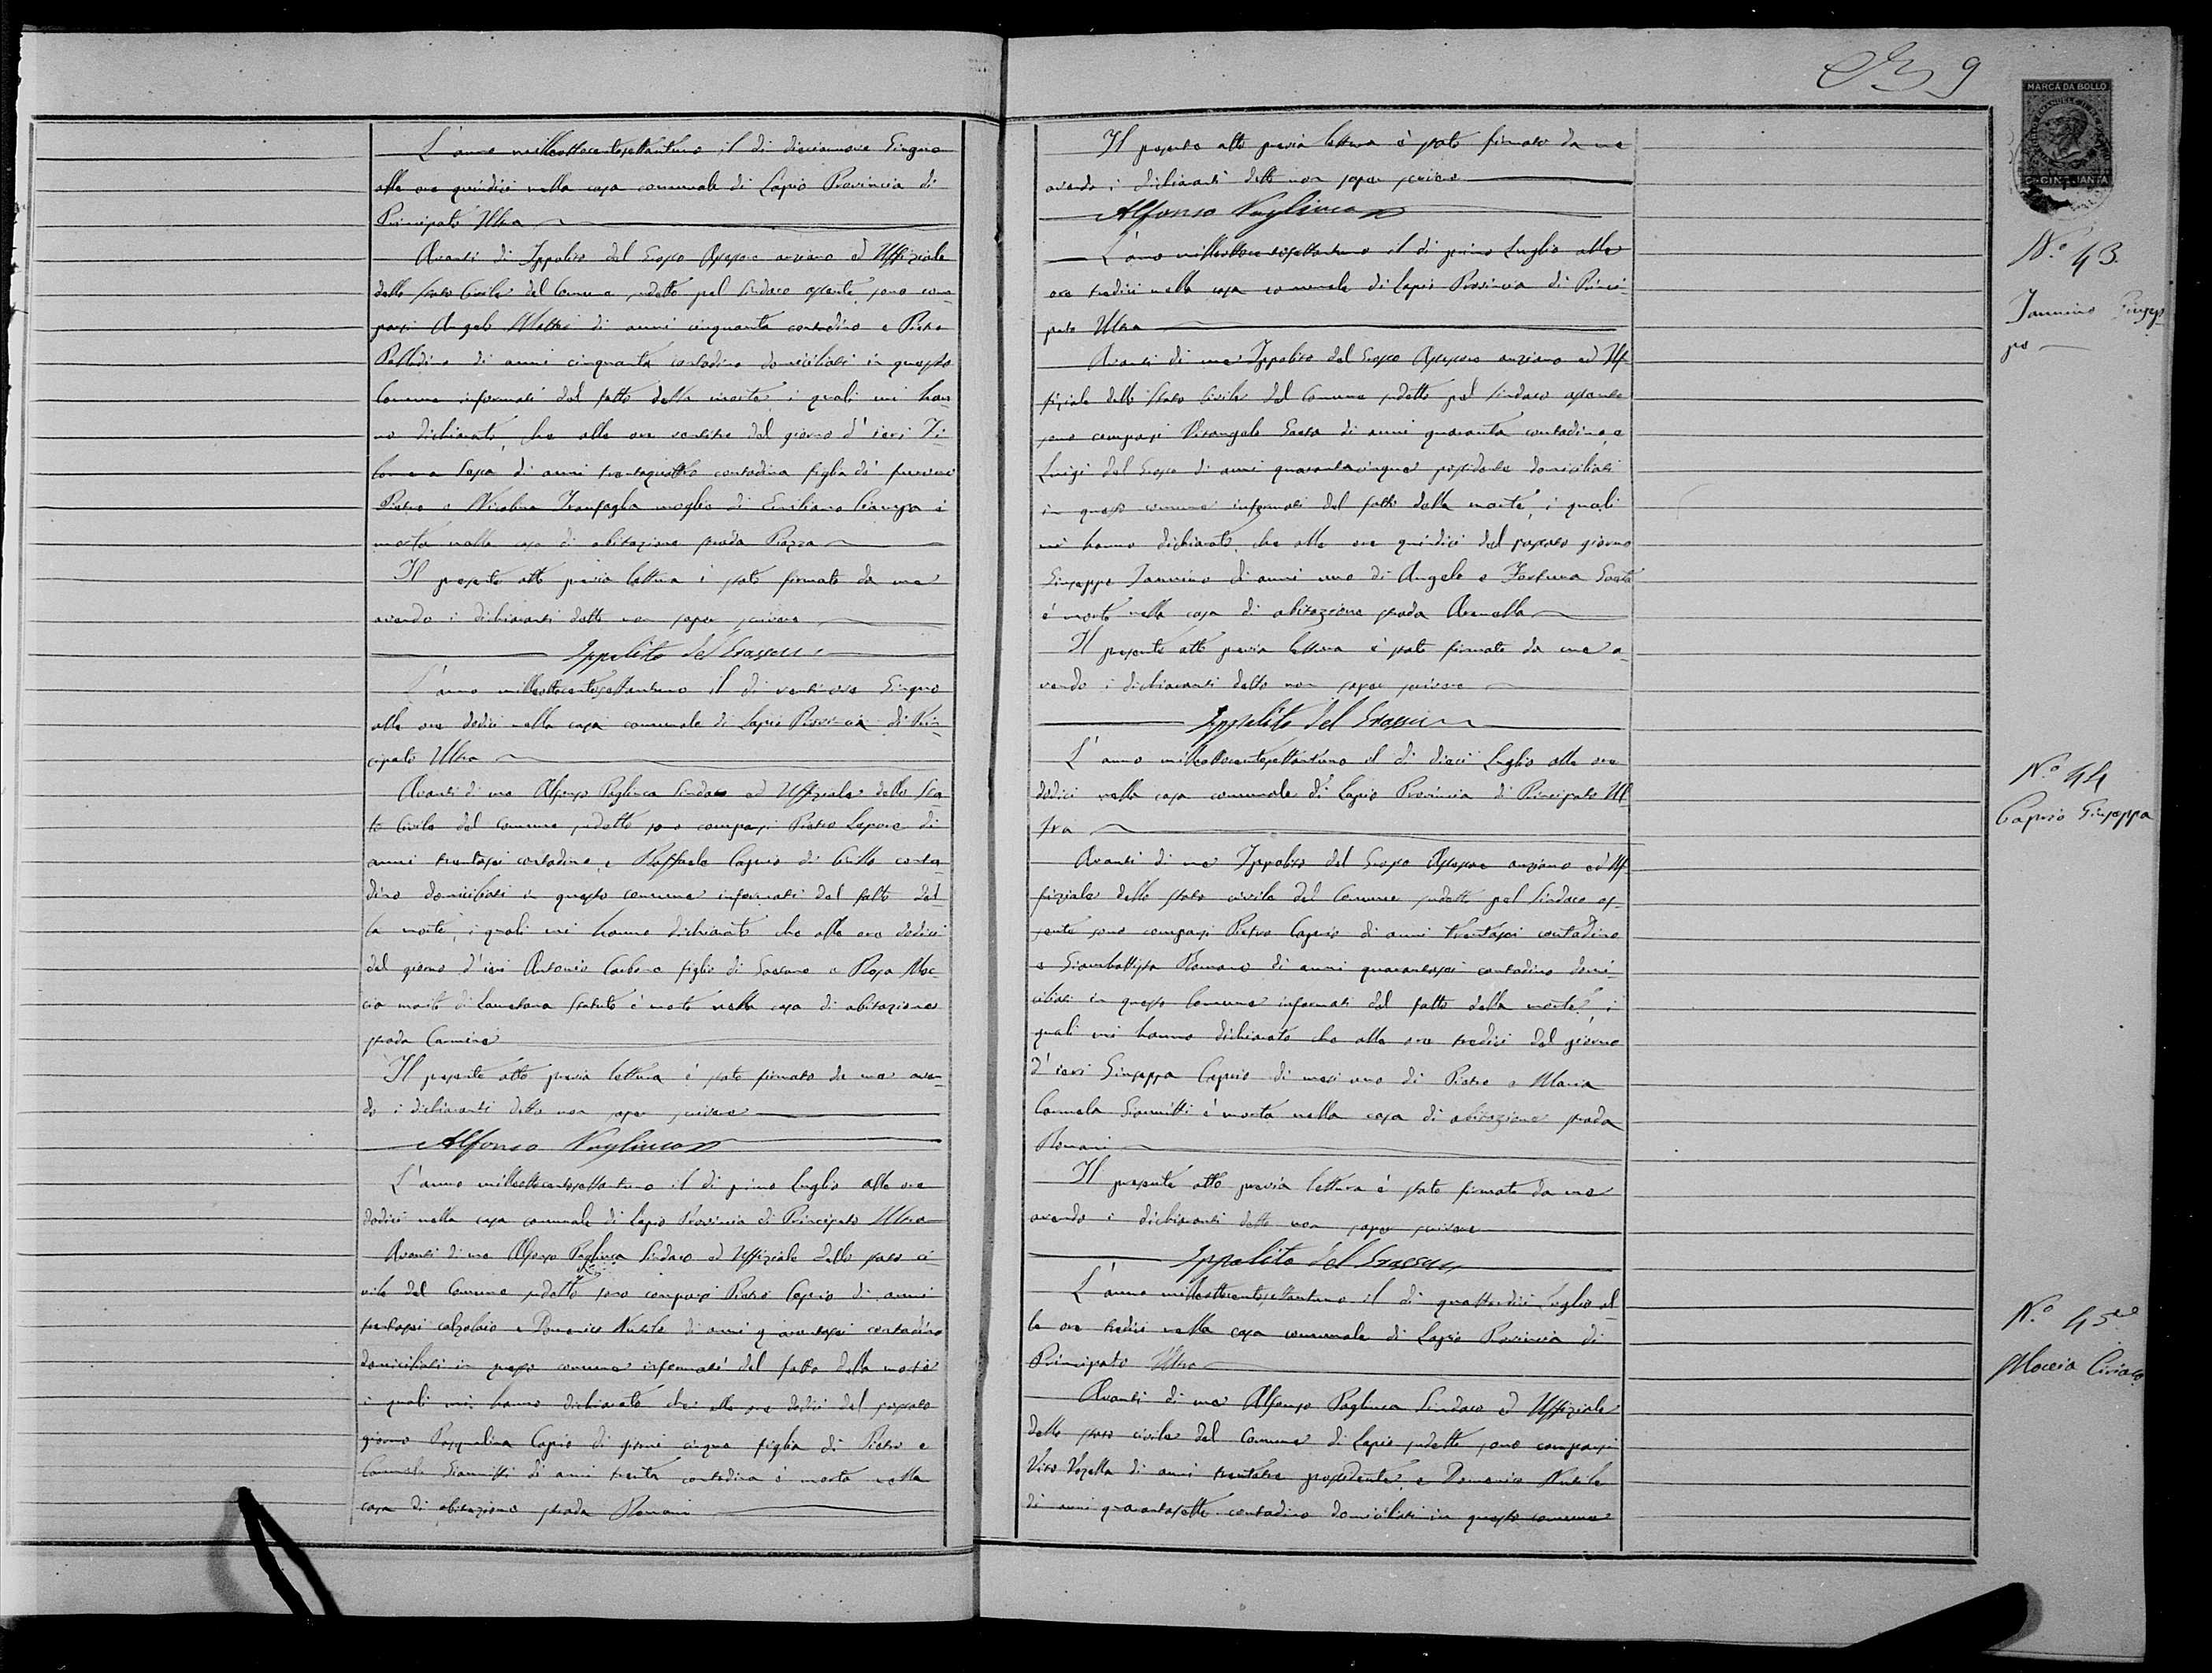 L'anno milleottocentosettantuno il di diciannove Giugno
alle ore quindici nella casa comunale di Lapio Provincia di
Principato Ultra
Avanti di Ippolito del Grosso Assessore anziano ed Uffiziale
dello Stato Civile del Comune sudetto pel Sindaco assente sono com-
parsi Angelo di anni cinquanta contadino e Pietro
di anni cinquanta contadino domiciliati in questo
Comune informati del fatto della morte, i quali mi han-
no dichiarato, che alle ore ventitre del giorno d'ieri Fi-
lomena di anni trentaquattro contadina figlia de' furono
Pietro e Nicolina Tranfaglia moglie di Emiliano Ciampa è
morta nella casa di abitazione strada Piazza
Il presente atto previa lettura è stato firmato da me
avendo i dichiaranti detto non saper scrivere
Ippolito del Grosso
L'anno milleottocentosettantuno il di Giugno
alle ore dodici nella casa comunale di Lapio Provincia di Prin-
cipato Ultra
Avanti di me Alfonso Pagliuca Sindaco ed Uffiziale dello Sta-
to Civile del Comune sudetto sono comparsi Pietro Lepore di
anni trentasei contadino, e Raffaele Caprio di conta-
dino domiciliati in questo comune informati del fatto del-
la morte, i quali mi hanno dichiarato che alle ore dodici
del giorno d'ieri Antonio Carbone figlio di Gaetano e Rosa Moc-
cia marito di è morto nella casa di abitazione
strada Carmine
Il presente atto previa lettura è stato firmato da me aven-
do i dichiaranti detto non saper scrivere
Alfonso Pagliuca
L'anno milleottocentosettantuno il di primo Luglio alle ore
dodici nella casa comunale di Lapio Provincia di Principato Ultra
Avanti di me Alfonso Pagliuca Sindaco ed Uffiziale dello stato ci-
vile del Comune sudetto sono comparsi Pietro Caprio di anni
trentasei calzolaio e Domenico di anni quarantasei contadino
domiciliati in questo comune informati del fatto della morte
i quali mi hanno dichiarato che alle ore dodici del passato
giorno Pasqualina Caprio di giorni cinque figlia di Pietro e
Carmela Giannitti di anni trenta contadina è morta nella
casa di abitazione strada Romani
9
Il presente atto previa lettura è stato firmato da me
avendo i dichiaranti detto non saper scrivere
Alfonso Pagliuca
L'anno milleottocentosettantuno il di primo Luglio alle
ore tredici nella casa comunale di Lapio Provincia di Princi-
pato Ultra
Avanti di me Ippolito del Grosso Assessore anziano ed Uf-
fiziale dello Stato Civile del Comune sudetto pel Sindaco assente
sono comparsi Vitangelo Gaeta di anni quaranta contadino, e
Luigi del Grosso di anni quarantacinque possidente domiciliati
in questo comune informati del fatto della morte, i quali
mi hanno dichiarato, che alle ore quindici del passato giorno
Giuseppe Iannino di anni uno di Angelo e Fortuna Gaeta
è morto nella casa di abitazione strada
Il presente atto previa lettura è stato firmato da me a-
vendo i dichiaranti detto non saper scrivere
Ippolito del Grosso
L'anno milleottocentosettantuno il di dieci Luglio alle ore
dodici nella casa comunale di Lapio Provincia di Principato Ul-
tra
Avanti di me Ippolito del Grosso Assessore anziano ed Uf-
fiziale dello stato civile del Comune sudetto pel Sindaco as-
sente sono comparsi Pietro Caprio di anni trentasei contadino
e Giambattista Romano di anni quarantasei contadino domi-
ciliati in questo Comune informati del fatto della morte, i
quali mi hanno dichiarato che alle ore tredici del giorno
d'ieri Giuseppa Caprio di mesi uno di Pietro e Maria
Carmela Giannitti è morta nella casa di abitazione strada
Romani
Il presente atto previa lettura è stato firmato da me
avendo i dichiaranti detto non saper scrivere
Ippolito del Grosso
L'anno milleottocentosettantuno il di quattordici Luglio al-
le ore tredici nella casa comunale di Lapio Provincia di
Principato Ultra
Avanti di me Alfonso Pagliuca Sindaco ed Uffiziale
dello stato civile del Comune di Lapio sudetto sono comparsi
Vito Vozella di anni trentatre possidente, e Domenico
di anni quarantasette contadino domiciliati in questo comune
MARCA DA BOLLO
C. CINQUANTA
No. 43.
Iannino Giusep-
pe
No. 44
Caprio Giuseppa
No. 45
Moccia Ciriaco